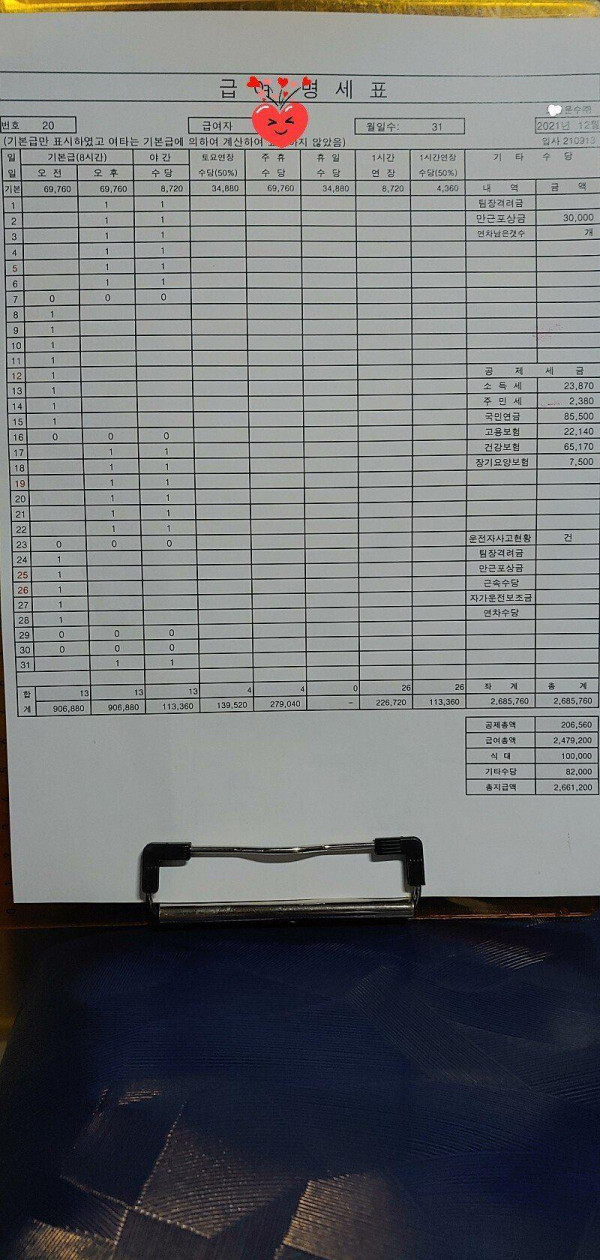 급 명 세 표
번호 20 급여자 월일수: 31 2021년 12월
(기본급만 표시하였고 여타는 기본급에 의하여 계산하여 하지 않았음) 입사 210913
일 기본급(8시간) 야 간 토요연장 주 휴 휴 일 1시간 1시간연장 기 타 수 당
일 오 전 오 후 수 당 수당(50%) 수 당 수 당 연 장 수당(50%)
기본 69,760 69,760 8,720 34,880 69,760 34,880 8,720 4,360 내 역 금 액
1 1 1 팀장격려금
2 1 1 만근포상금 30,000
3 1 1 연차남은갯수 개
4 1 1
5 1 1
6 1 1
7 0 0 0
8 1
9 1
10 1
11 1
12 1 공 제 세 금
13 1 소 득 세 23,870
14 1 주 민 세 2,380
15 1 국민연금 85,500
16 0 0 0 고용보험 22,140
17 1 1 건강보험 65,170
18 1 1 장기요양보험 7,500
19 1 1
20 1 1
21 1 1
22 1 1
23 0 0 0 운전자사고현황 건
24 1 팀장격려금
25 1 만근포상금
26 1 근속수당
27 1 자가운전보조금
28 1 연차수당
29 0 0 0
30 0 0 0
31 1 1
합 13 13 13 4 4 0 26 26 좌 계 총 계
계 906,880 906,880 113,360 139,520 279,040 - 226,720 113,360 2,685,760 2,685,760
공제총액 206,560
급여총액 2,479,200
식 대 100,000
기타수당 82,000
총지급액 2,661,200